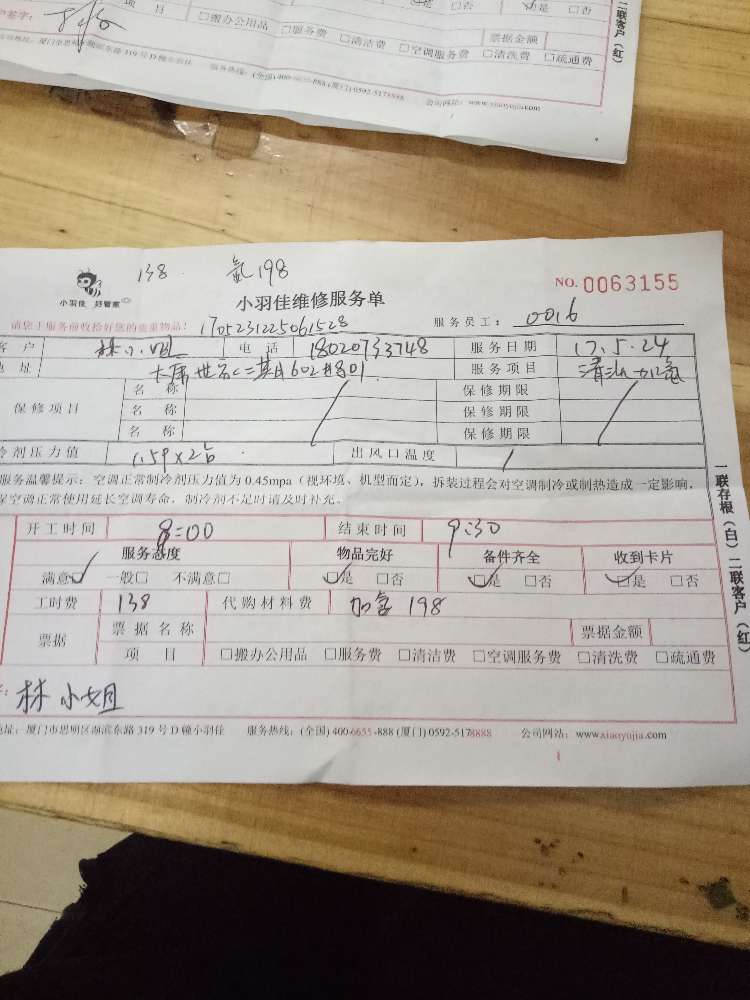 项 目 □搬办公用品 □服务费 □清洁费 □空调服务费 □清洗费 □疏通费
□否 是 □否
票据金额
319号D幢小羽佳 服务热线: (全国)400-6655-888 (厦门)0592-5178888 公司网站: www.xiaoyujia.com
二联客户(红)
138. 氟198
小羽佳 好管家
小羽佳维修服务单
NO. 0063155
请您于服务前收拾好您的贵重物品! 1705231225061528 服务员工: 0016
客 户 林小姐 电 话 18020733748 服务日期 17.5.24
地 址 服务项目
保修项目 名 称 / 保修期限 /
名 称 保修期限
名 称 保修期限
冷剂压力值 出风口温度 /
服务温馨提示: 空调正常制冷剂压力值为 0.45mpa (视环境、机型而定), 拆装过程会对空调制冷或制热造成一定影响,
保空调正常使用延长空调寿命, 制冷剂不足时请及时补充。
开工时间 8:00 结束时间 9:30
服务态度 物品完好 备件齐全 收到卡片
满意☑ 一般□ 不满意□ ☑是 □否 ☑是 □否 ☑是 □否
工时费 138 代购材料费 加氟 198
票据 票据名称 票据金额
项 目 □搬办公用品 □服务费 □清洁费 □空调服务费 □清洗费 □疏通费
林小姐
地址: 厦门市思明区湖滨东路 319 号 D 幢小羽佳 服务热线: (全国) 400-6655-888 (厦门) 0592-5178888 公司网站: www.xiaoyujia.com
一联存根(白) 二联客户(红)